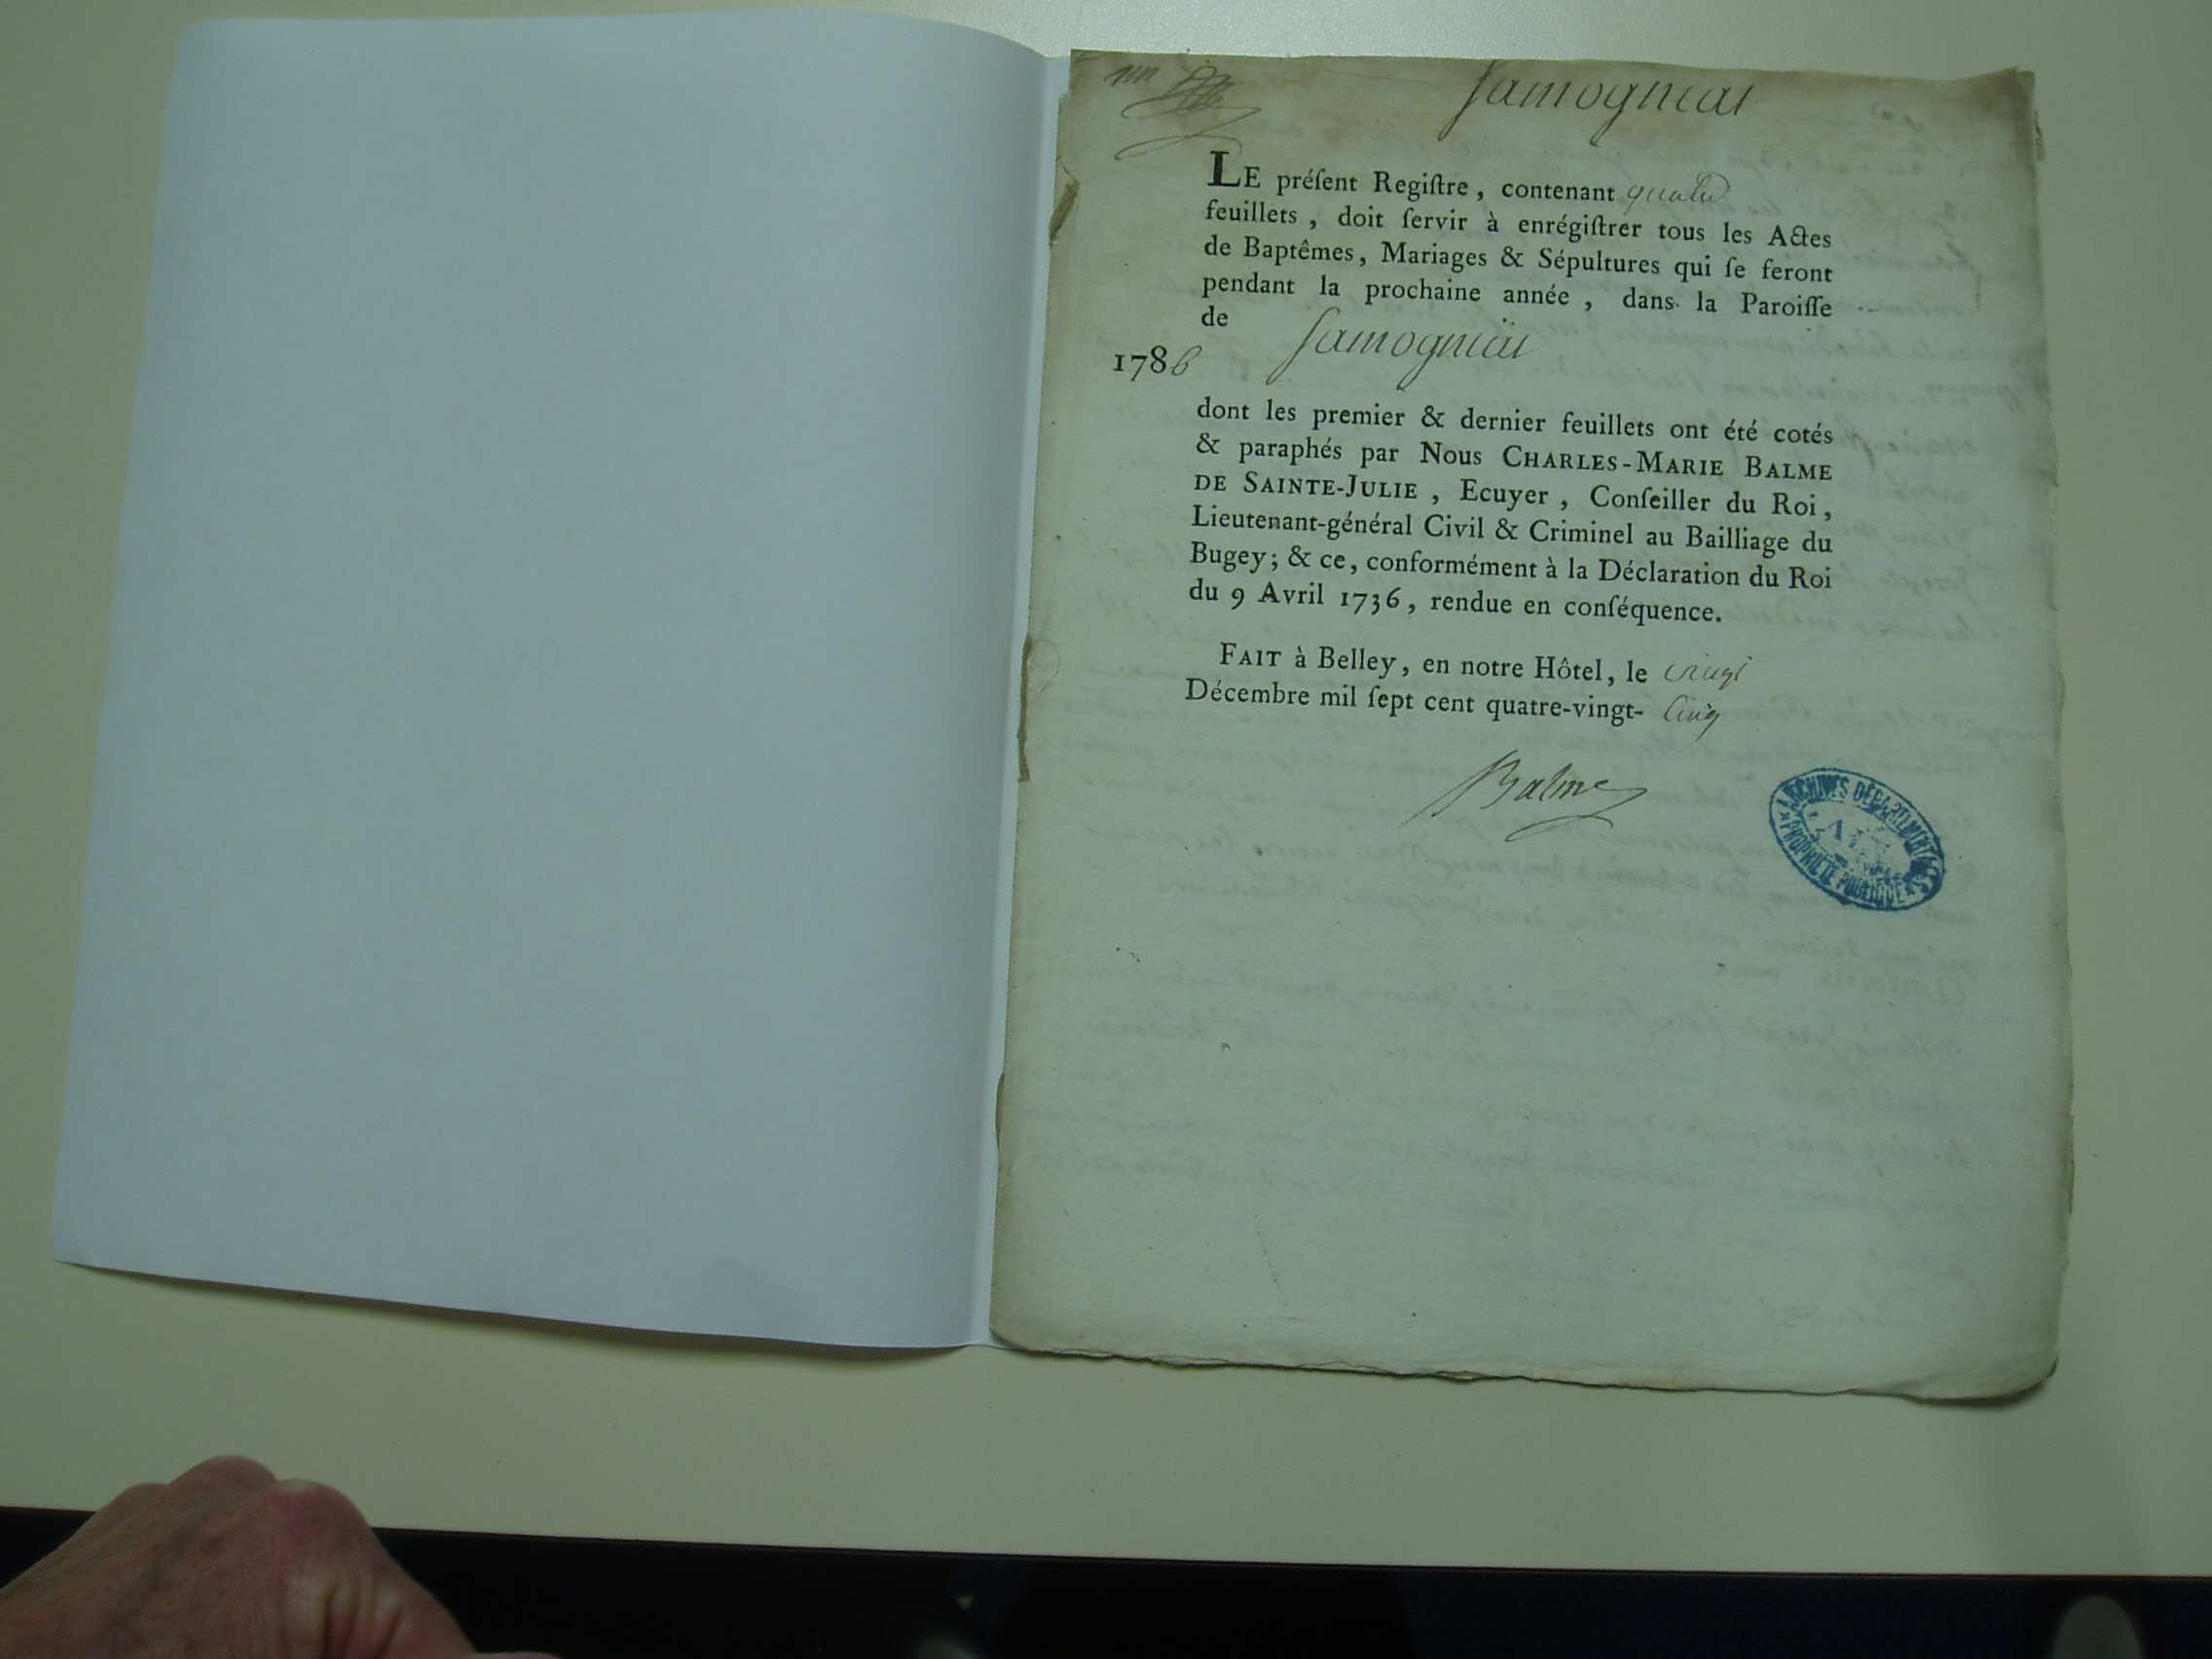 un
Samogniat
LE préſent Regiſtre, contenant quatre
feuillets, doit ſervir à enrégiſtrer tous les Actes
de Baptêmes, Mariages & Sépultures qui ſe feront
pendant la prochaine année, dans la Paroiſſe
de Samogniat
1786
dont les premier & dernier feuillets ont été cotés
& paraphés par Nous CHARLES-MARIE BALME
DE SAINTE-JULIE, Ecuyer, Conſeiller du Roi,
Lieutenant-général Civil & Criminel au Bailliage du
Bugey; & ce, conformément à la Déclaration du Roi
du 9 Avril 1736, rendue en conſéquence.
FAIT à Belley, en notre Hôtel, le vingt
Décembre mil ſept cent quatre-vingt- Cinq
Balme
ARCHIVES DÉPARTEMENTALES
AIN
PROPRIÉTÉ PUBLIQUE